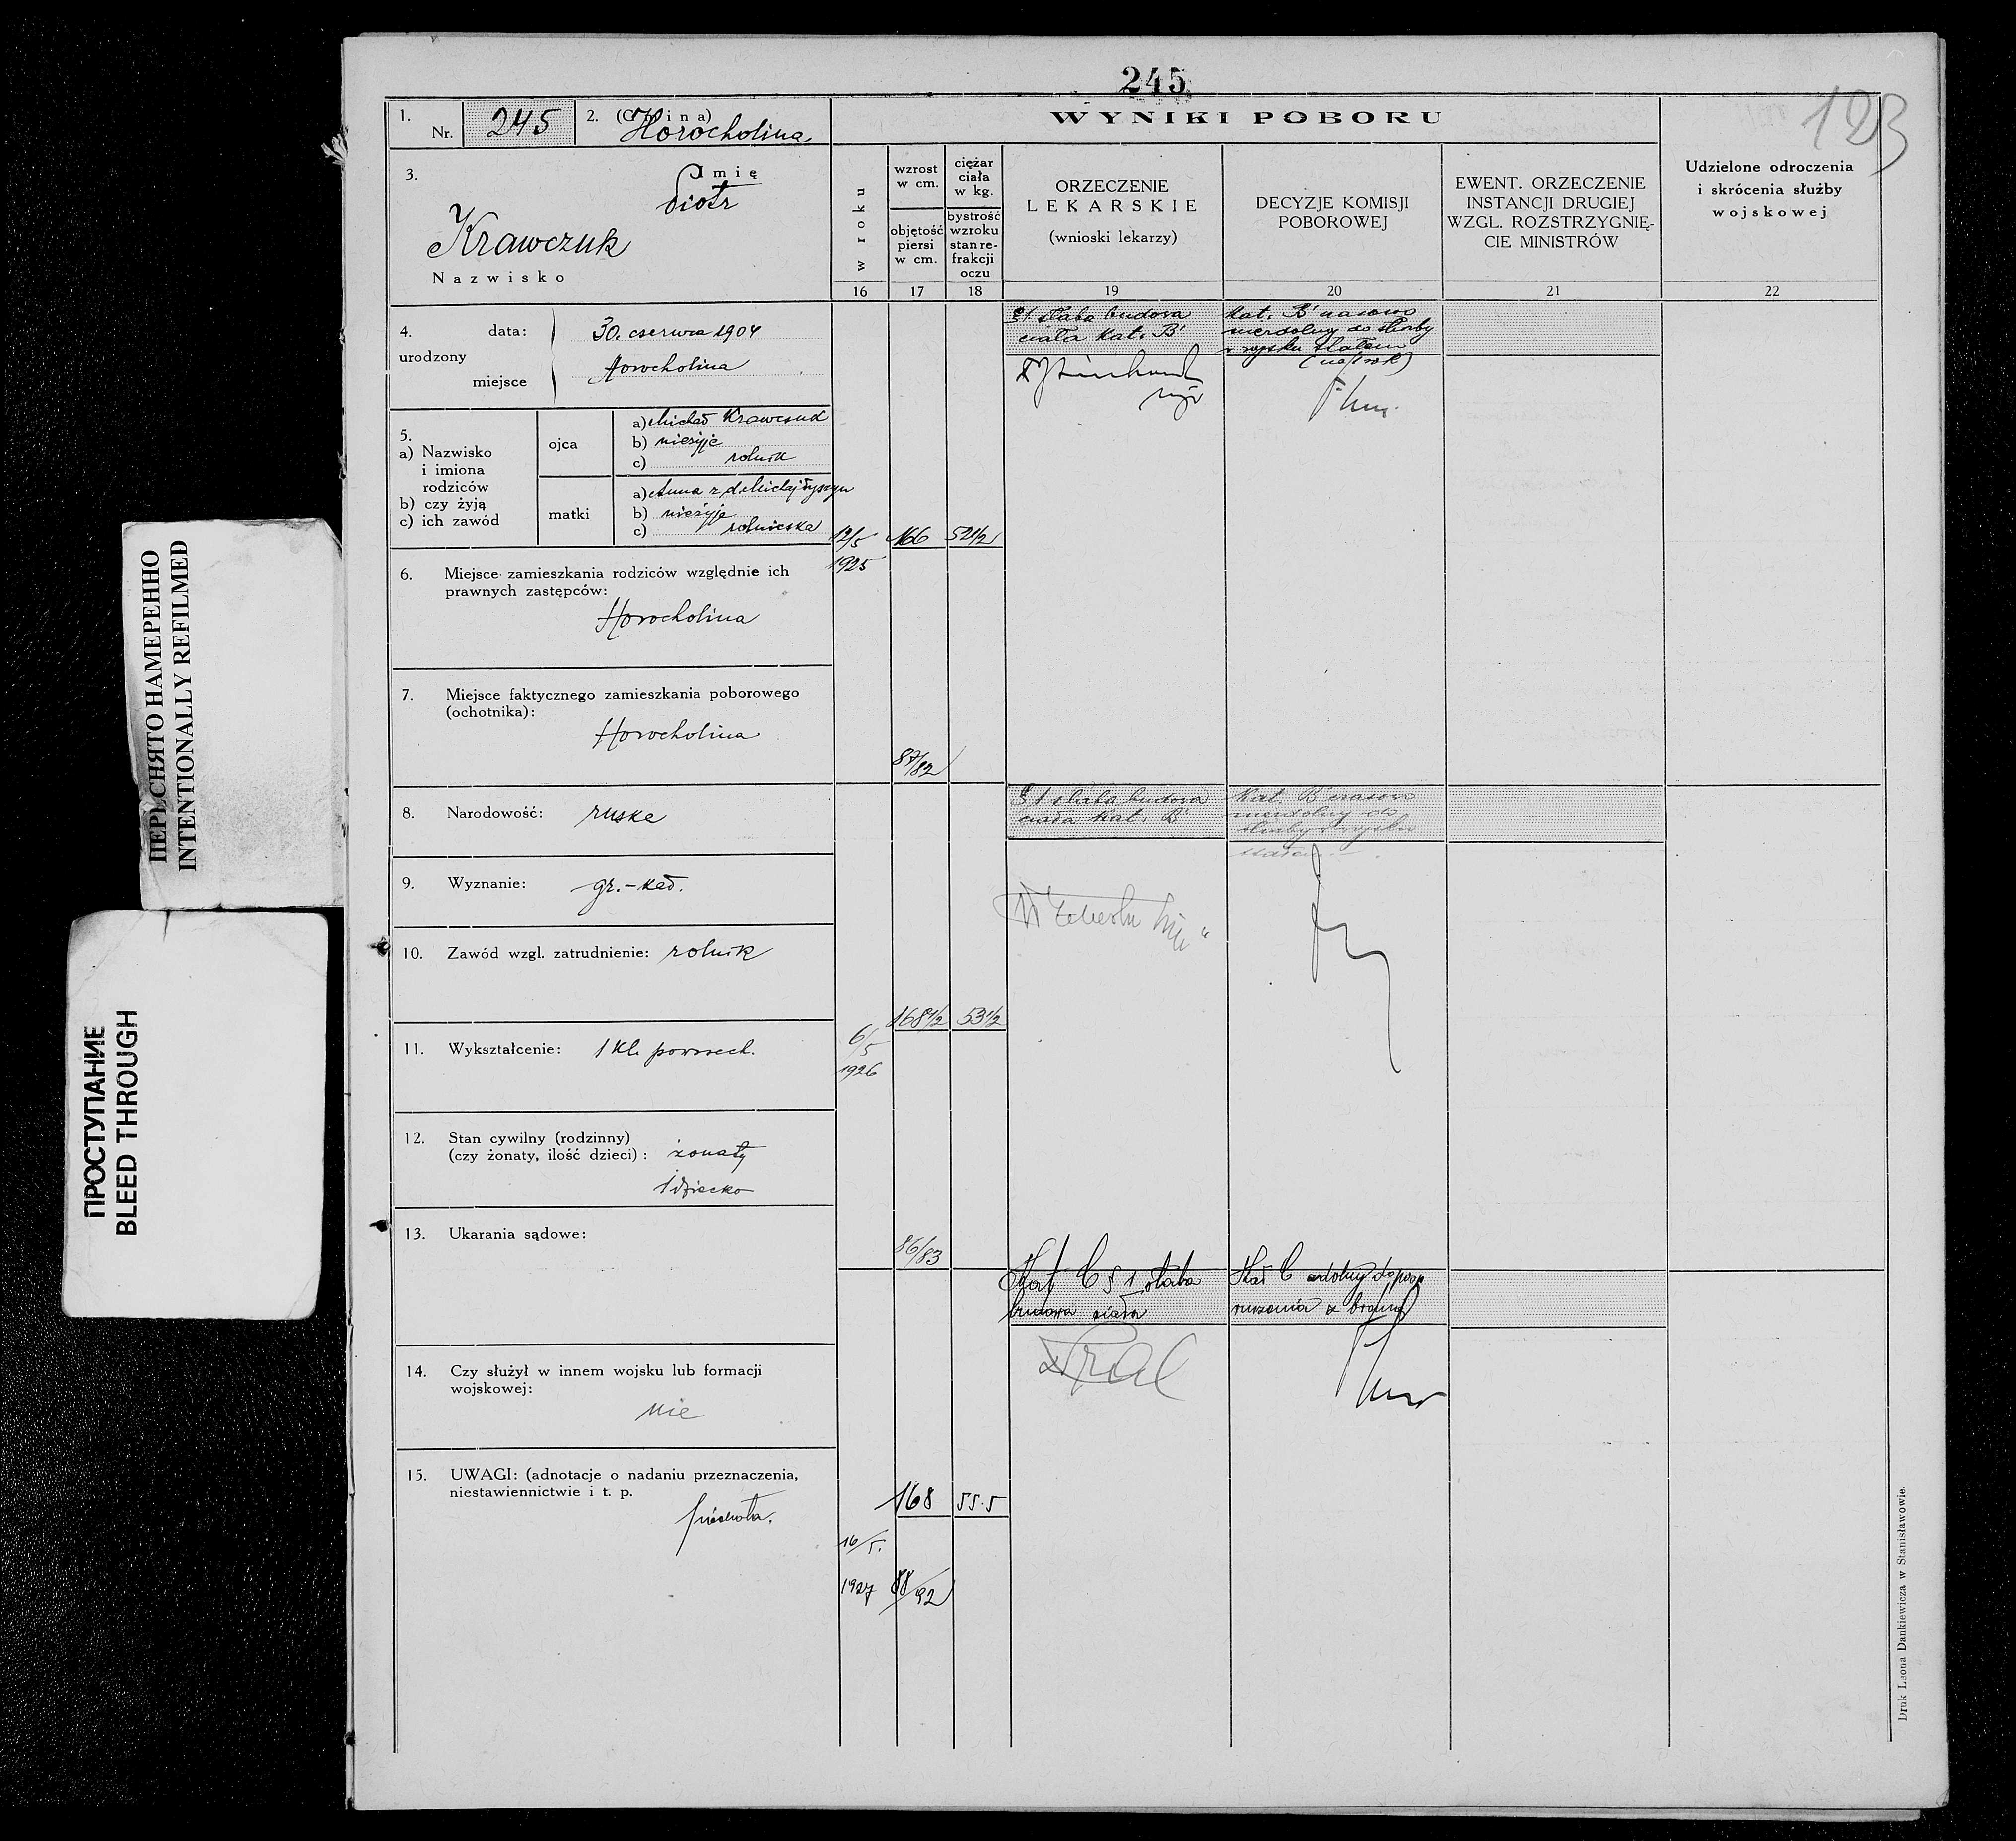 245
123
1.
Nr. 245
2. (Gmina)
Horocholina
WYNIKI POBORU
3.
Imię
Piotr
Krawczuk
Nazwisko
w roku
wzrost
w cm.
objętość
piersi
w cm.
ciężar
ciała
w kg.
bystrość
wzroku
stan re-
frakcji
oczu
ORZECZENIE
LEKARSKIE
(wnioski lekarzy)
DECYZJE KOMISJI
POBOROWEJ
EWENT. ORZECZENIE
INSTANCJI DRUGIEJ
WZGL. ROZSTRZYGNIĘ-
CIE MINISTRÓW
Udzielone odroczenia
i skrócenia służby
wojskowej
16 17 18 19 20 21 22
4. data: 30. czerwca 1904
urodzony
miejsce Horocholina
5.
a) Nazwisko
i imiona
rodziców
b) czy żyją
c) ich zawód
ojca
a) Michał Krawczuk
b) nieżyje
c) rolnik
matki
a) Anna z d. Michajłyszyn
b) nieżyje
c) rolniczka
6. Miejsce zamieszkania rodziców względnie ich
prawnych zastępców:
Horocholina
7. Miejsce faktycznego zamieszkania poborowego
(ochotnika):
Horocholina
8. Narodowość: ruska
9. Wyznanie: gr.-kat.
10. Zawód wzgl. zatrudnienie: rolnik
11. Wykształcenie: 1 kl. powszech.
12. Stan cywilny (rodzinny)
(czy żonaty, ilość dzieci): żonaty
1 dziecko
13. Ukarania sądowe:
14. Czy służył w innem wojsku lub formacji
wojskowej:
nie
15. UWAGI: (adnotacje o nadaniu przeznaczenia,
niestawiennictwie i t. p.
piechota.
12/5 166 52 1/2
1925
87/82
§1 słaba budowa
ciała kat. B
kat. B czasowo
niezdolny do służby
w wojsku stałem
(na 1 rok)
168 1/2 53 1/2
6/5
1926
86/83
§ 1 słaba budowa
ciała kat. B
Kat. B czasowo
niezdolny do
służby w wojsku
stałem
168 55.5
16/5.
1927 88/92
Kat C § 1 słaba
budowa ciała
Kat C zdolny do posp.
ruszenia z bronią
Druk Leona Dankiewicza w Stanisławowie.
ПЕРЕСНЯТО НАМЕРЕННО
INTENTIONALLY REFILMED
ПРОСТУПАНИЕ
BLEED THROUGH